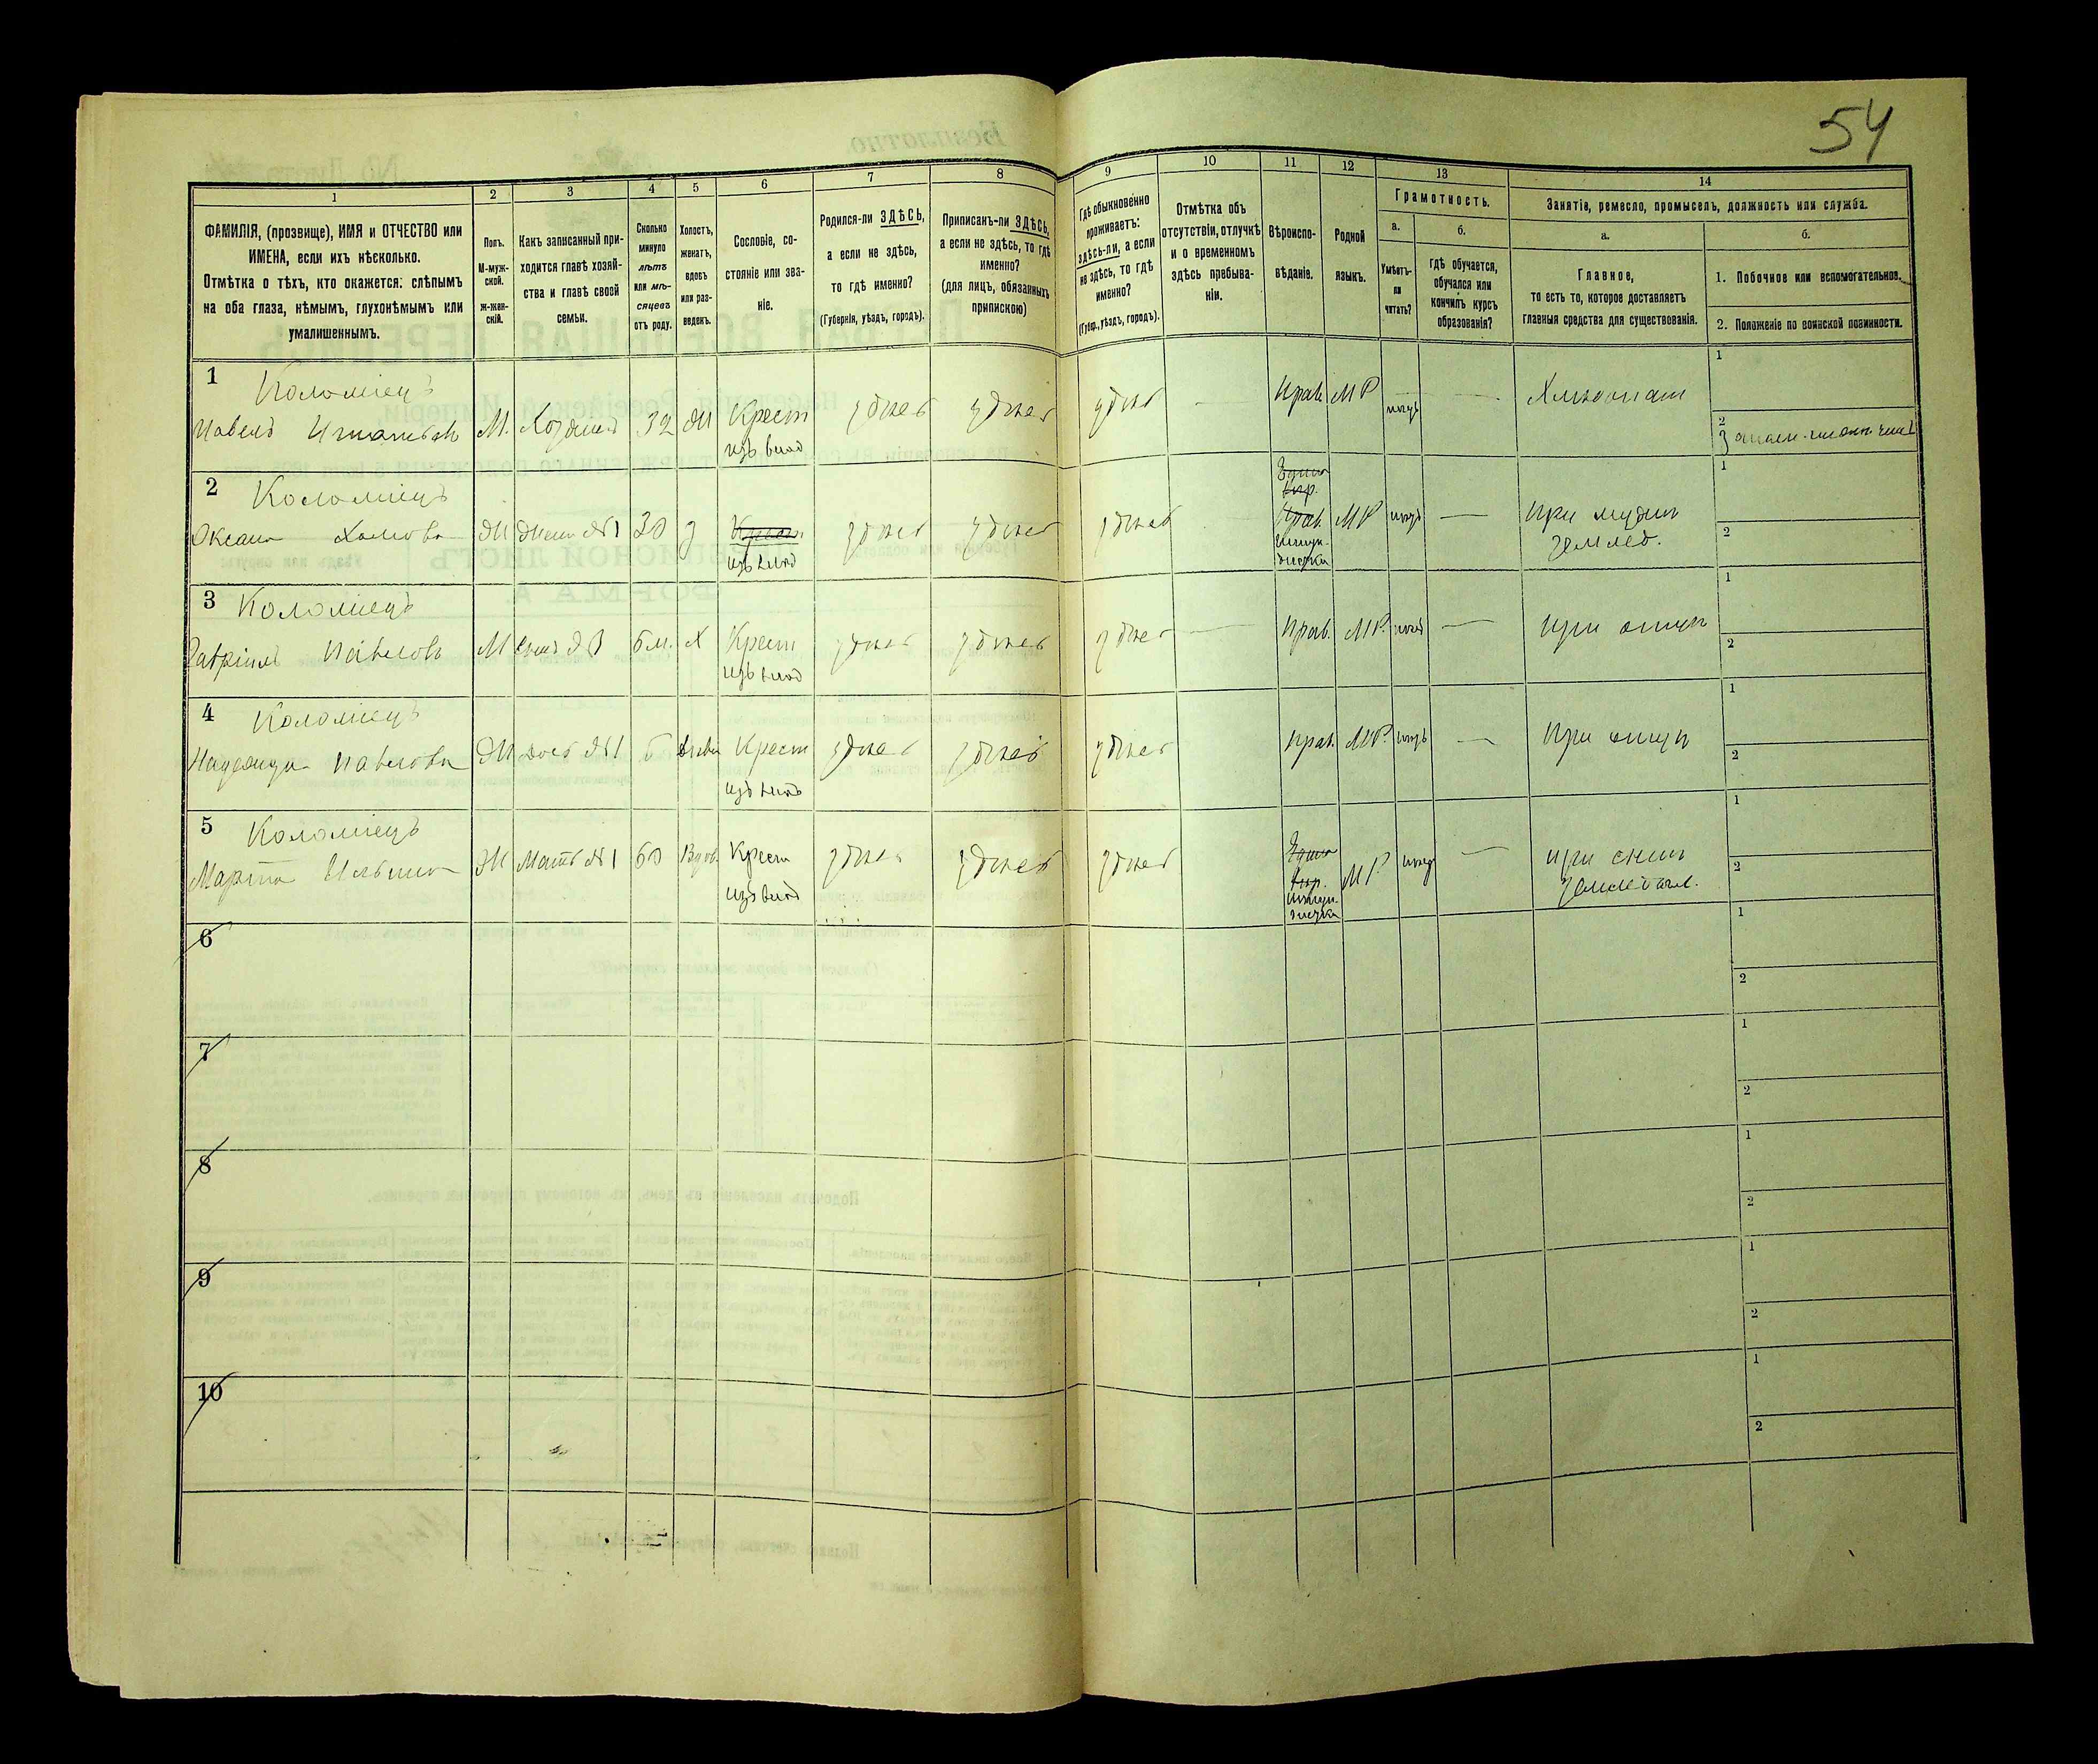 54
1
2
3
4
5
6
7
8
9
10
11
12
13
14
ФАМИЛІЯ, (прозвище), ИМЯ и ОТЧЕСТВО или
ИМЕНА, если ихъ нѣсколько.
Отмѣтка о тѣхъ, кто окажется: слѣпымъ
на оба глаза, нѣмымъ, глухонѣмымъ или
умалишеннымъ.
Полъ.
М-муж-
ской.
ж-жен-
скій.
Какъ записанный при-
ходится главѣ хозяй-
ства и главѣ своей
семьи.
Сколько
минуло
лѣтъ
или мѣ-
сяцевъ
отъ роду.
Холостъ,
женатъ,
вдовъ
или раз-
веденъ.
Сословіе, со-
стояніе или зва-
ніе.
Родился-ли ЗДѢСЬ,
а если не здѣсь,
то гдѣ именно?
(Губернія, уѣздъ, городъ).
Приписанъ-ли ЗДѢСЬ,
а если не здѣсь, то гдѣ
именно?
(для лицъ, обязанныхъ
припискою)
Гдѣ обыкновенно
проживаетъ:
здѣсь-ли, а если
не здѣсь, то гдѣ
именно?
(Губер., уѣздъ, городъ).
Отмѣтка объ
отсутствіи, отлучкѣ
и о временномъ
здѣсь пребыва-
ніи.
Вѣроиспо-
вѣданіе.
Родной
языкъ.
Грамотность.
а.
Умѣетъ-
ли
читать?
б.
гдѣ обучается,
обучался или
кончилъ курсъ
образованія?
Занятіе, ремесло, промыселъ, должность или служба.
а.
Главное,
то есть то, которое доставляетъ
главныя средства для существованія.
б.
1. Побочное или вспомогательное.
2. Положеніе по воинской повинности.
1
Коломіецъ
Павелъ Игнатьевъ
М.
Хозяинъ
32
Ж
Крест
изъ влад
здѣсь
здѣсь
здѣсь
Прав.
МР
нѣтъ
Хлѣбопаш
1
2
2
Коломіецъ
Оксана Хомова
Ж
Жена №1
30
З
Крест
изъ влад
здѣсь
здѣсь
здѣсь
Прав.
штун-
дистка
МР
нѣтъ
При мужѣ
землед.
1
2
3
Коломіецъ
Гавріилъ Павловъ
М
6 м.
Х
Крест
изъ влад
здѣсь
здѣсь
здѣсь
Прав.
МР.
нѣтъ
При отцѣ
1
2
4
Коломіецъ
Надежда Павлова
Ж
дочь №1
Крест
изъ влад
здѣсь
здѣсь
здѣсь
Прав.
МР.
нѣтъ
При отцѣ
1
2
5
Коломіецъ
Марта Ильина
Ж
Мать №1
60
Вдов.
Крест
изъ влад
здѣсь
здѣсь
здѣсь
штун-
дистка
МР
нѣтъ
при сынѣ
1
2
6
1
2
7
1
2
8
1
2
9
1
2
10
1
2